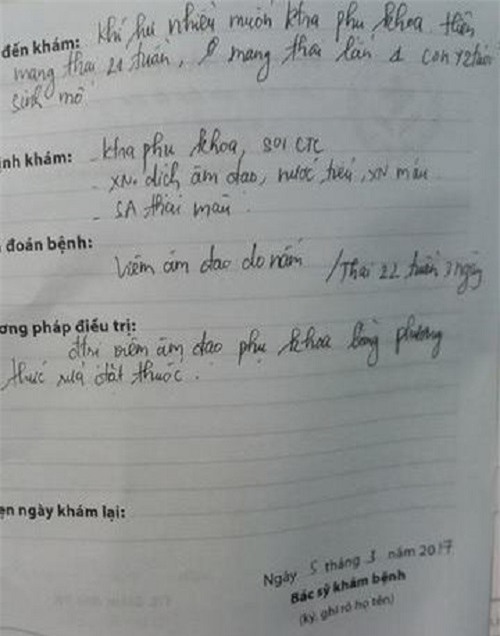 đến khám: Khí hư nhiều muốn ktra phụ khoa hiện
mang thai 21 tuần, mang thai lần 2 con 1
sinh mổ
ịnh khám: - ktra phụ khoa, soi CTC
- XN. dịch âm đạo, nước tiểu, XN máu
- SA thai màu
đoán bệnh:
Viêm âm đạo do nấm / Thai 22 tuần 3 ngày
ơng pháp điều trị:
đtrị viêm âm đạo phụ khoa bằng phương
thức rửa đặt thuốc.
ẹn ngày khám lại:
Ngày 5 tháng 3 năm 2017
Bác sỹ khám bệnh
(ký, ghi rõ họ tên)